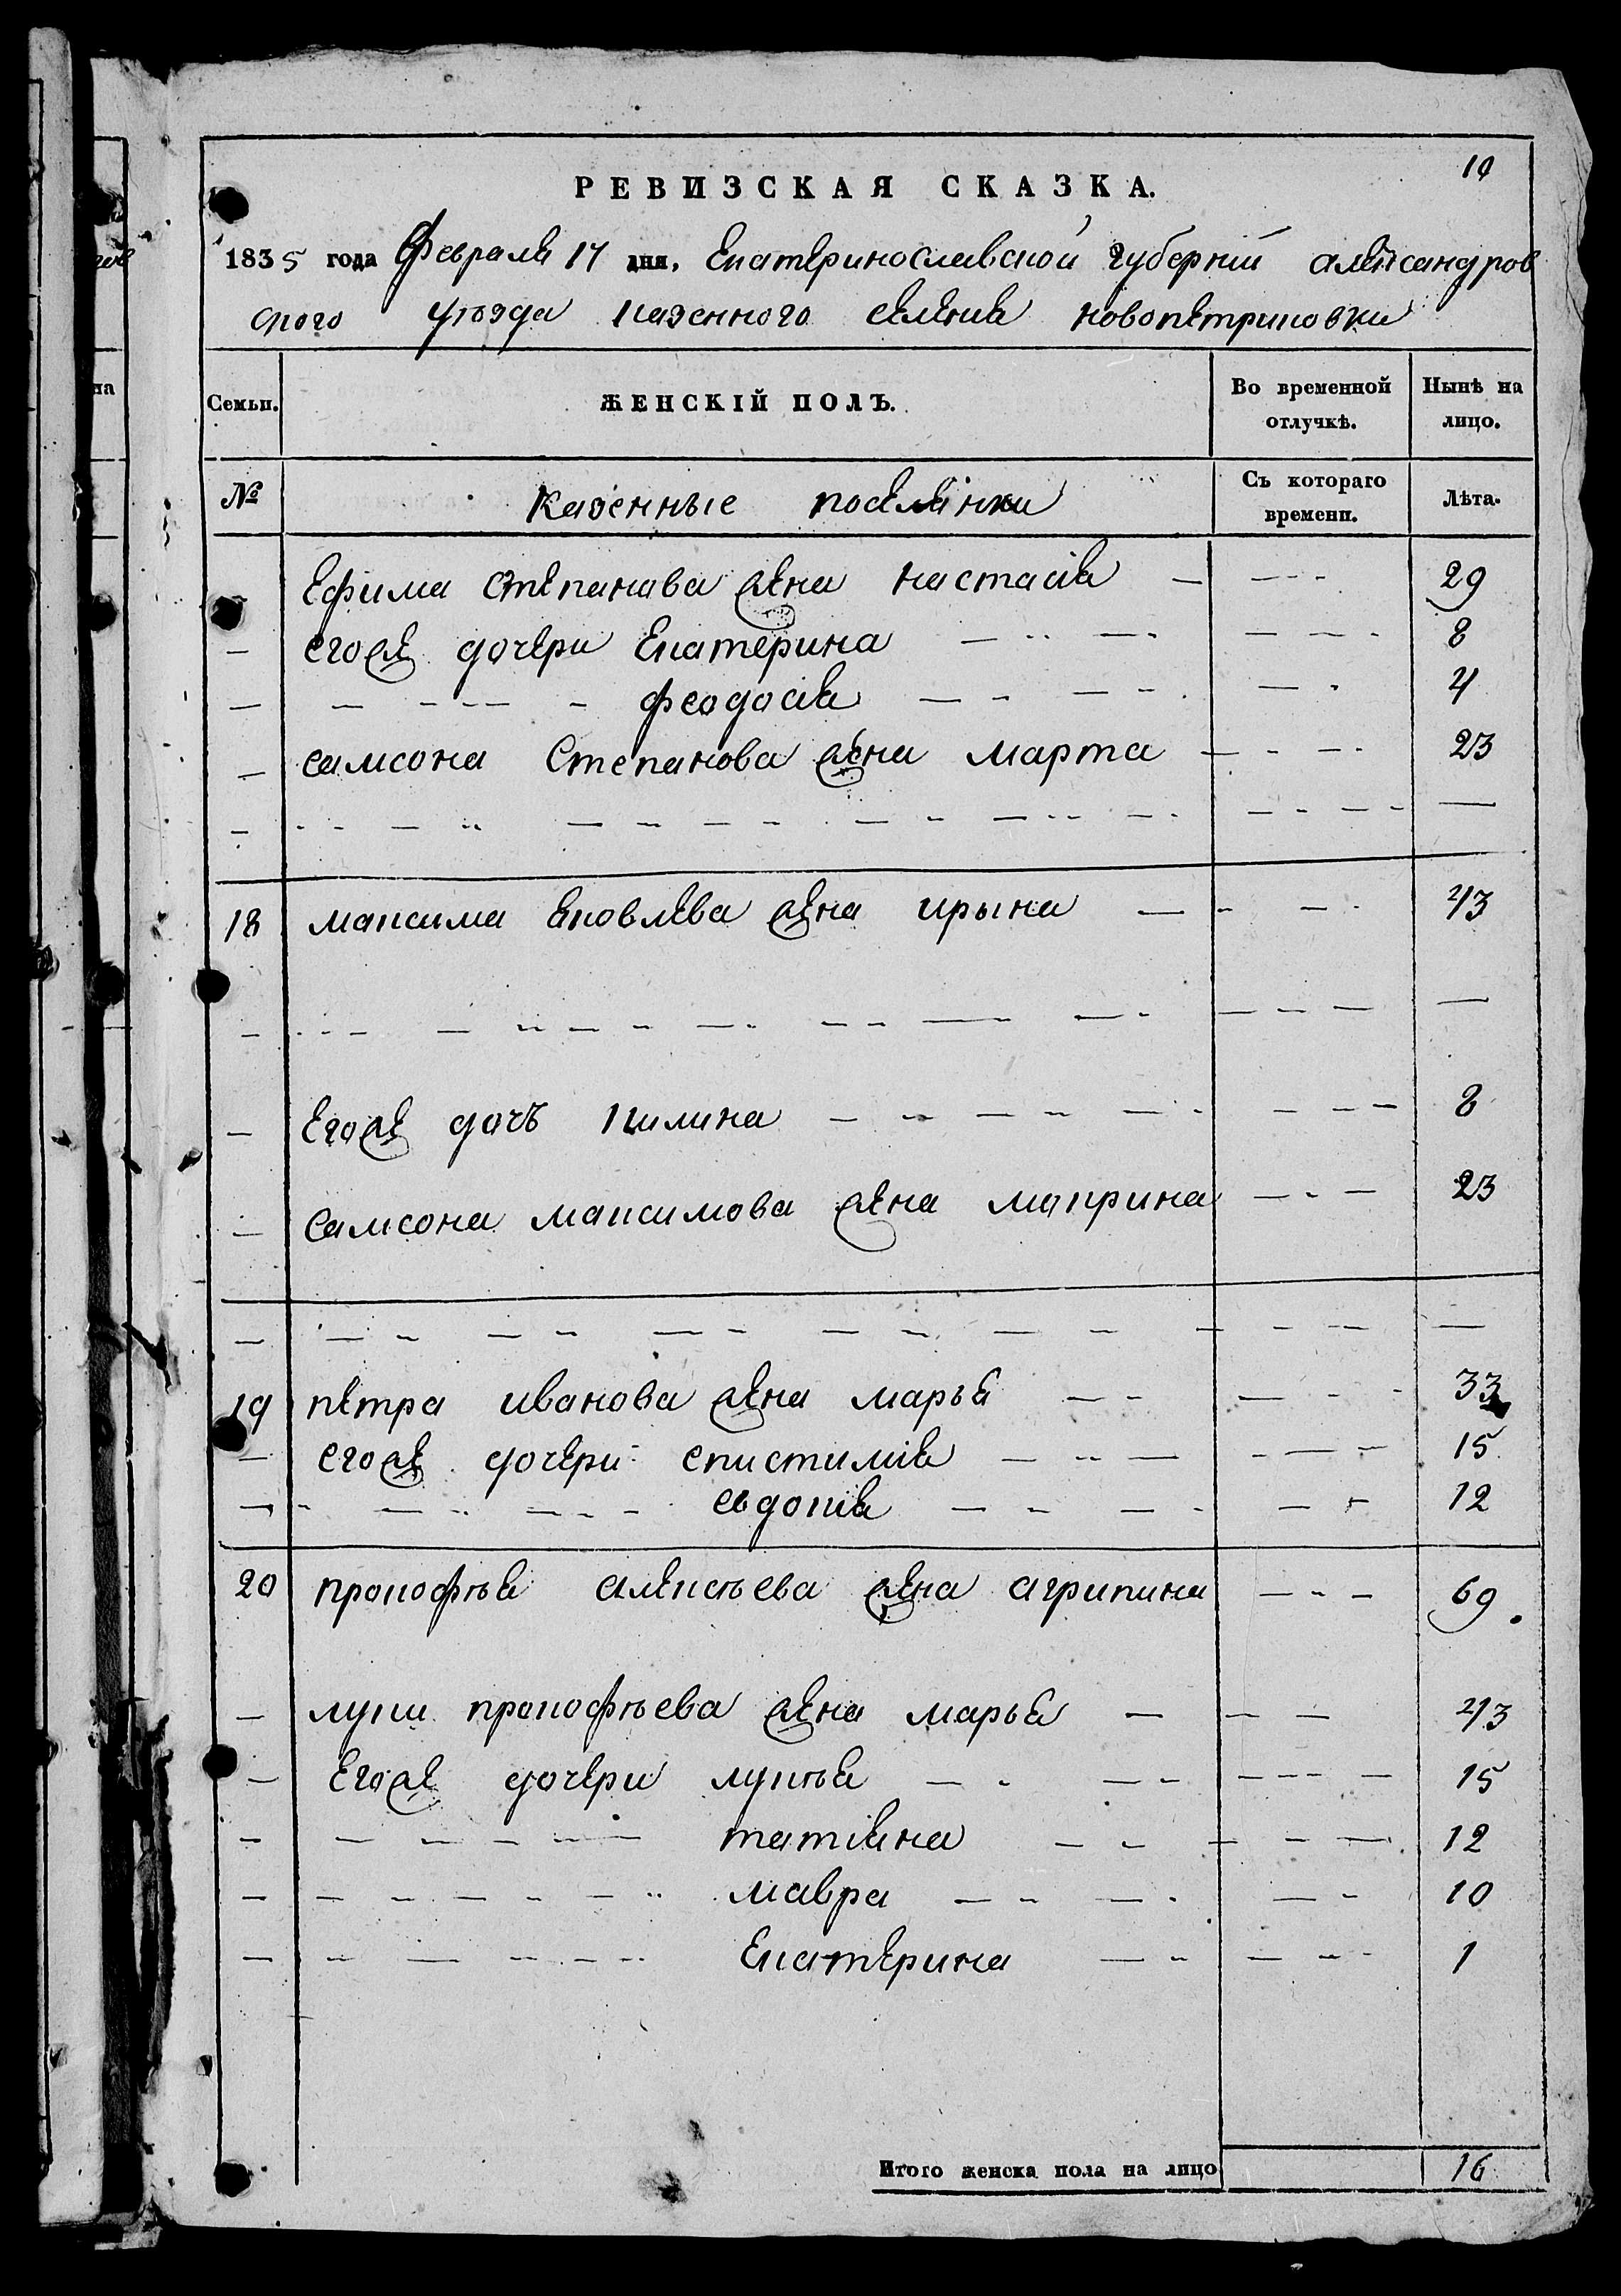 19
РЕВИЗСКАЯ СКАЗКА.
1835 года Февраля 17 дня, Екатеринославской губерніи александров
ского уѣзда казенного селенія новопетриковки
Семьи. ЖЕНСКІЙ ПОЛЪ. Во временной отлучкѣ. Нынѣ на лицо.
№ Казенные поселянки Съ котораго времени. Лѣта.
Ефима степанова жена настасія 29
его же дочери Екатерина 8
феодосія 4
самсона Степанова жена марта 23
18 максима яковлева жена ирына 43
Его же дочъ килина 8
самсона максимова жена мокрина 23
19 петра иванова жена марья 33
его же дочери епистимія 15
евдокія 12
20 прокофѣя алексѣева жена агрипина 69
луки прокофѣева жена марья 43
Его же дочери лукѣя 15
татіяна 12
мавра 10
Екатерина 1
Итого женска пола на лицо 16